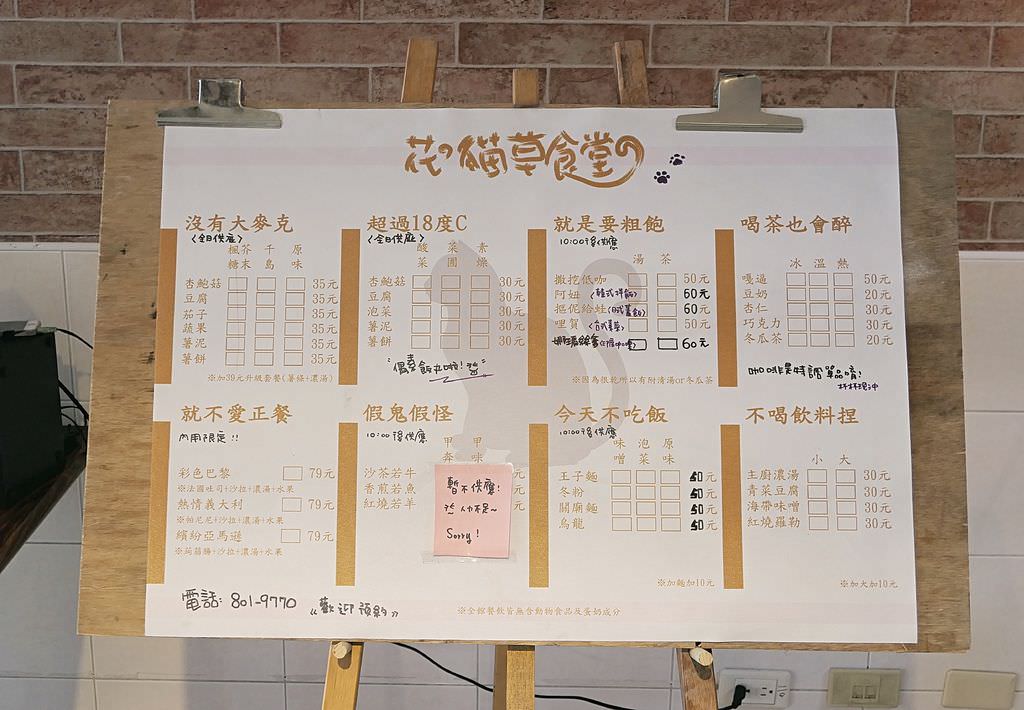 花貓草食堂
沒有大麥克
〈全日供應〉
楓糖 芥末 千島 原味
杏鮑菇 35元
豆腐 35元
茄子 35元
蔬果 35元
薯泥 35元
薯餅 35元
※加39元升級套餐(薯條+濃湯)
超過18度C
〈全日供應〉
酸菜 菜圃 素燥
杏鮑菇 30元
豆腐 30元
泡菜 30元
薯泥 30元
薯餅 30元
就是要粗飽
10:00後供應
湯 茶
撒挖低咖 50元
阿妞〈韓式拌飯〉 60元
摳伲給蛙(日式蓋飯) 60元
哩賀〈台式羹〉 50元
60元
※因為很乾所以有附清湯or冬瓜茶
喝茶也會醉
冰 溫 熱
嘎逼 50元
豆奶 20元
杏仁 30元
巧克力 30元
冬瓜茶 20元
咖啡是特調單品唷!
杯杯現沖
就不愛正餐
內用限定!!
彩色巴黎 79元
※法國吐司+沙拉+濃湯+水果
熱情義大利 79元
※帕尼尼+沙拉+濃湯+水果
繽紛亞馬遜 79元
※蒟蒻腸+沙拉+濃湯+水果
假鬼假怪
10:00後供應
沙茶若牛 元
香煎若魚 元
紅燒若羊 元
暫不供應!
人力不足~
Sorry!
今天不吃飯
10:00後供應
味噌 泡菜 原味
王子麵 50元
冬粉 50元
關廟麵 50元
烏龍 50元
※加麵加10元
不喝飲料捏
小 大
主廚濃湯 30元
青菜豆腐 30元
海帶味噌 30元
紅燒羅勒 30元
※加大加10元
電話: 801-9770 《歡迎預約》
※全館餐飲皆無含動物食品及蛋奶成分